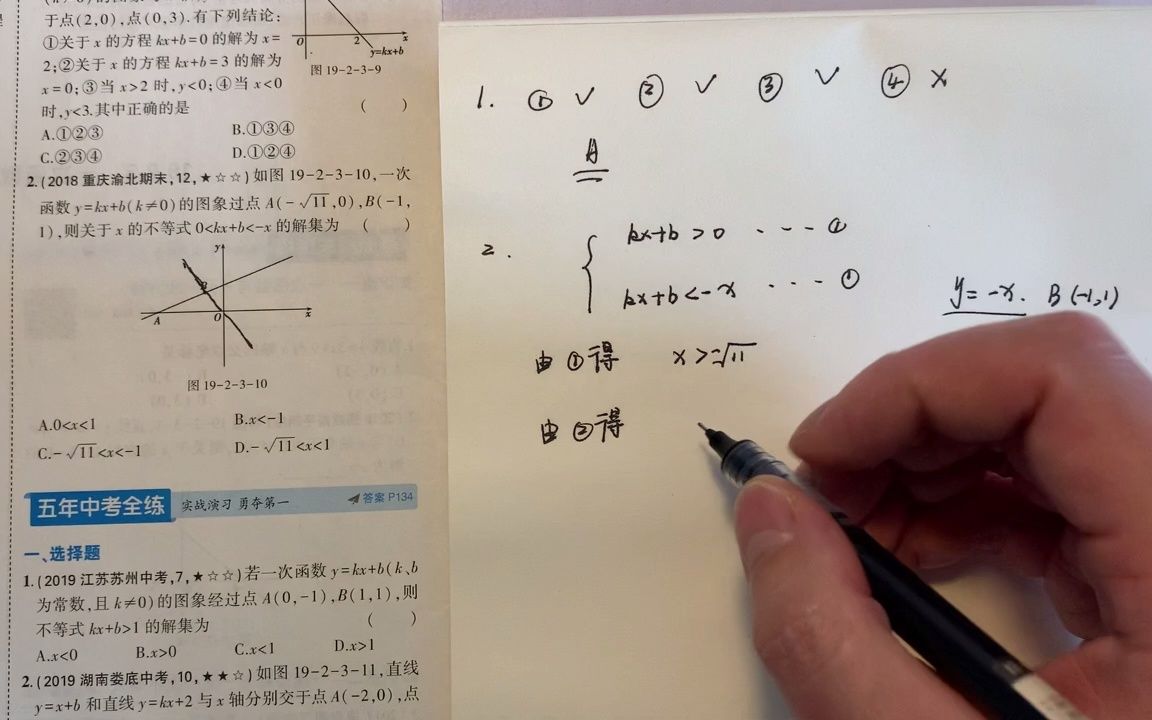 于点(2,0),点(0,3).有下列结论:
①关于 x 的方程 kx+b=0 的解为 x=
2;②关于 x 的方程 kx+b=3 的解为
x=0;③当 x>2 时,y<0;④当 x<0
时,y<3.其中正确的是 ( )
O 2 x
y=kx+b
图 19-2-3-9
A.①②③ B.①③④
C.②③④ D.①②④
2.(2018 重庆渝北期末,12,★☆☆)如图 19-2-3-10,一次
函数 y=kx+b(k≠0)的图象过点 A(-√11,0),B(-1,
1),则关于 x 的不等式 0<kx+b<-x 的解集为 ( )
y
B
A O x
图 19-2-3-10
A.0<x<1 B.x<-1
C.-√11<x<-1 D.-√11<x<1
五年中考全练 实战演习 勇夺第一 答案 P134
一、选择题
1.(2019 江苏苏州中考,7,★☆☆)若一次函数 y=kx+b(k、b
为常数,且 k≠0)的图象经过点 A(0,-1),B(1,1),则
不等式 kx+b>1 的解集为 ( )
A.x<0 B.x>0 C.x<1 D.x>1
2.(2019 湖南娄底中考,10,★★☆)如图 19-2-3-11,直线
y=x+b 和直线 y=kx+2 与 x 轴分别交于点 A(-2,0),点
1. ① √ ② √ ③ √ ④ ×
A
2. { kx+b>0 - - - ①
kx+b<-x - - - ①
y=-x. B(-1,1)
由①得 x>-√11
由②得